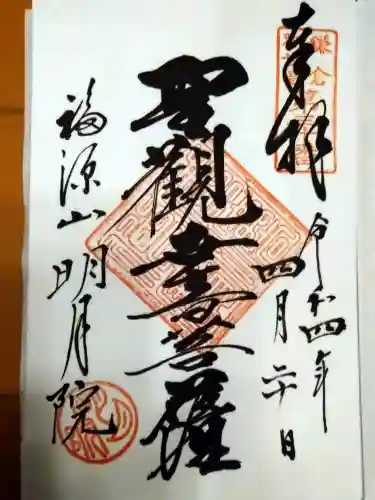 奉拝
令和四年
四月二十日
聖觀世音菩薩
福源山明月院